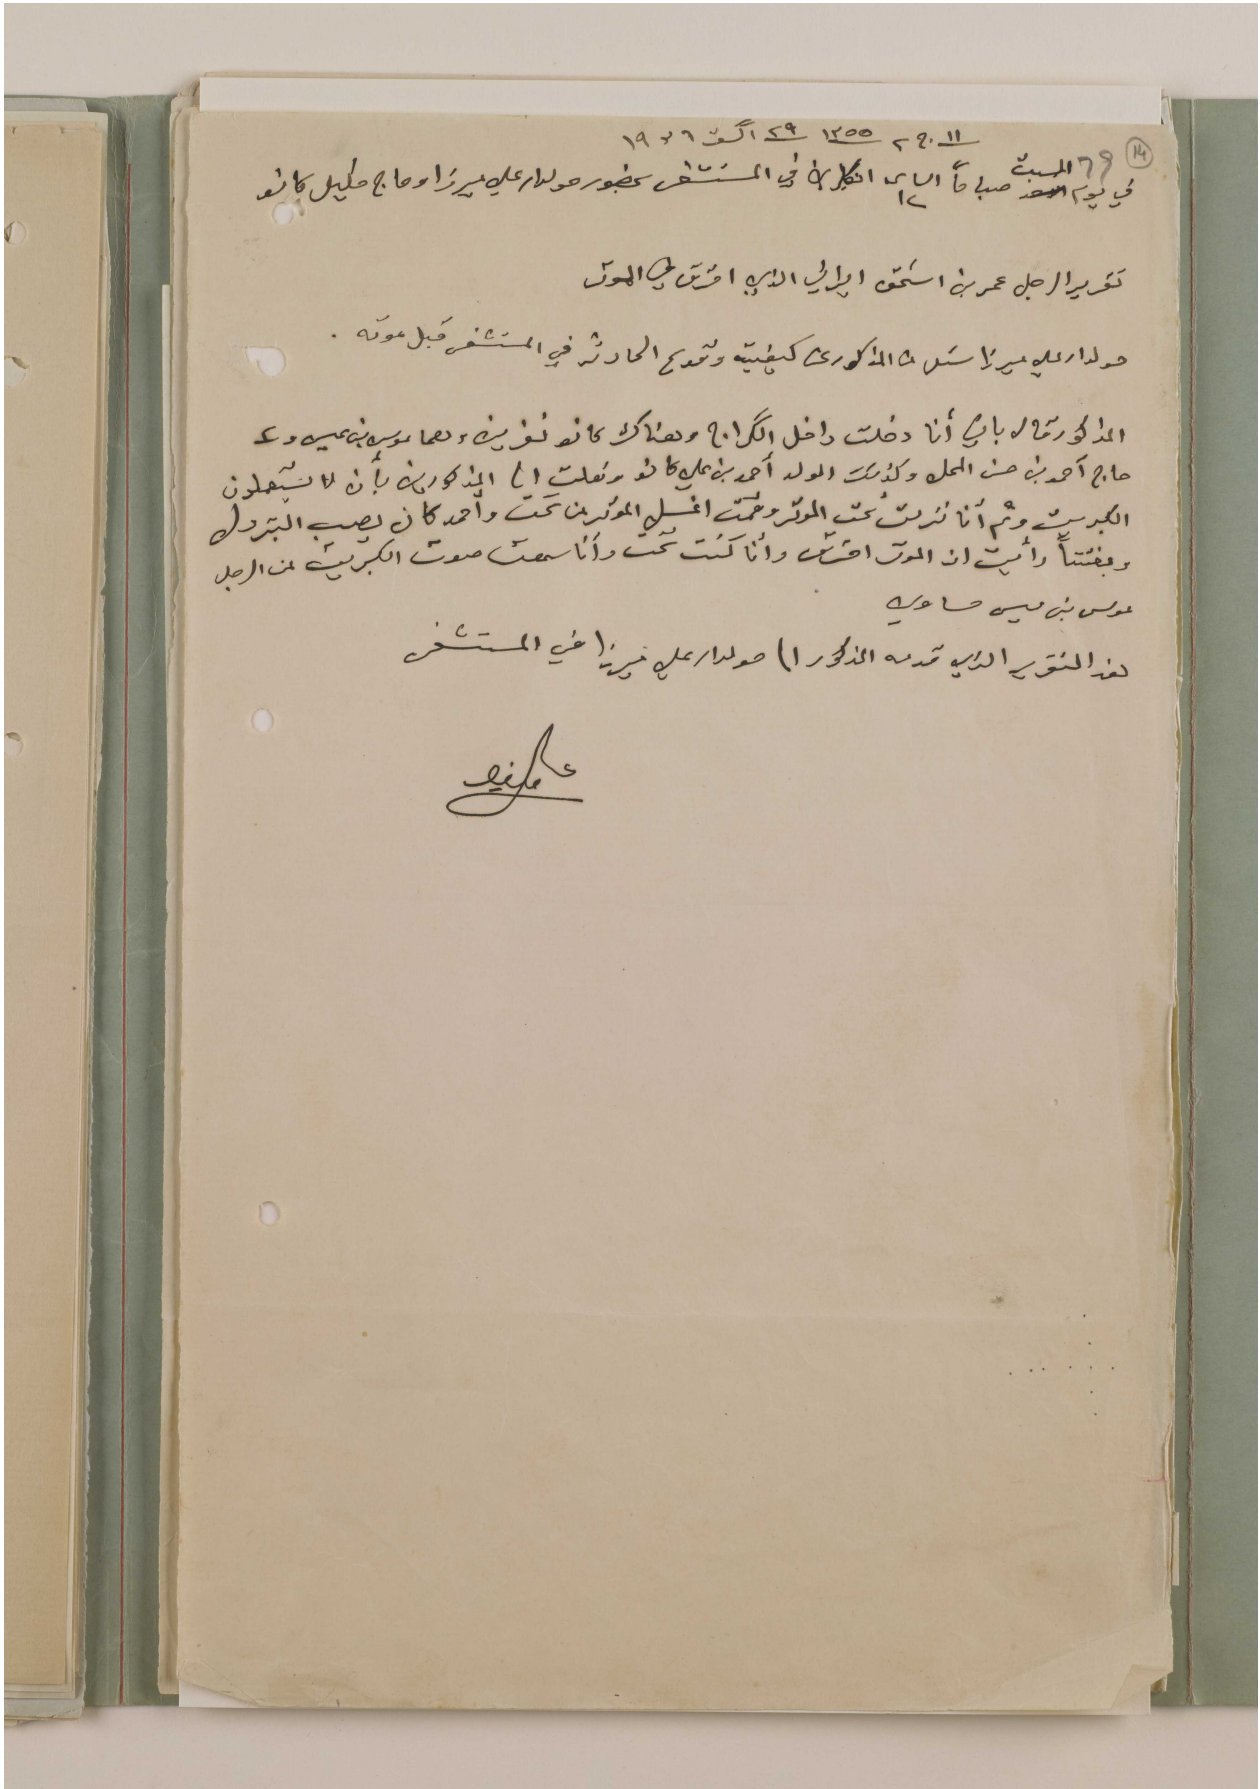 ١١ ج ٢ ١٣٥٥ ٢٩ اگست ١٩٣٦
14
69 السبت
في يوم صباحاً الساعه ١٢ في المستشفى بحضور حولدار علي ميرزا وحاج خليل كانو
تقرير الرجل عمر بن اسحق ايراني الذي احترق في الموتر
حولدار علي ميرزا سئل من المذكور عن كيفيت وقوع الحادثه في المستشفى قبل موته .
المذكور قال باني أنا دخلت داخل الگراج وهناك كانو نفرين وهما موسى بن عيسى و
حاج أحمد بن حسن المحل وكذلك الولد أحمد بن علي كانو وقلت الى المذكورين بأن لا تشعلون
الكبريت وثم أنا نزلت تحت الموتر وقمت اغسل الموتر من تحت وأحمد كان يصب البترول
وبغتتاً رأيت ان الموتر احترق وأنا كنت تحت وأنا سمعت صوت الكبريت من الرجل
موسى بن عيسى حساوي
هذ التقرير الذي قدمه المذكور الى حولدار علي ميرزا في المستشفى